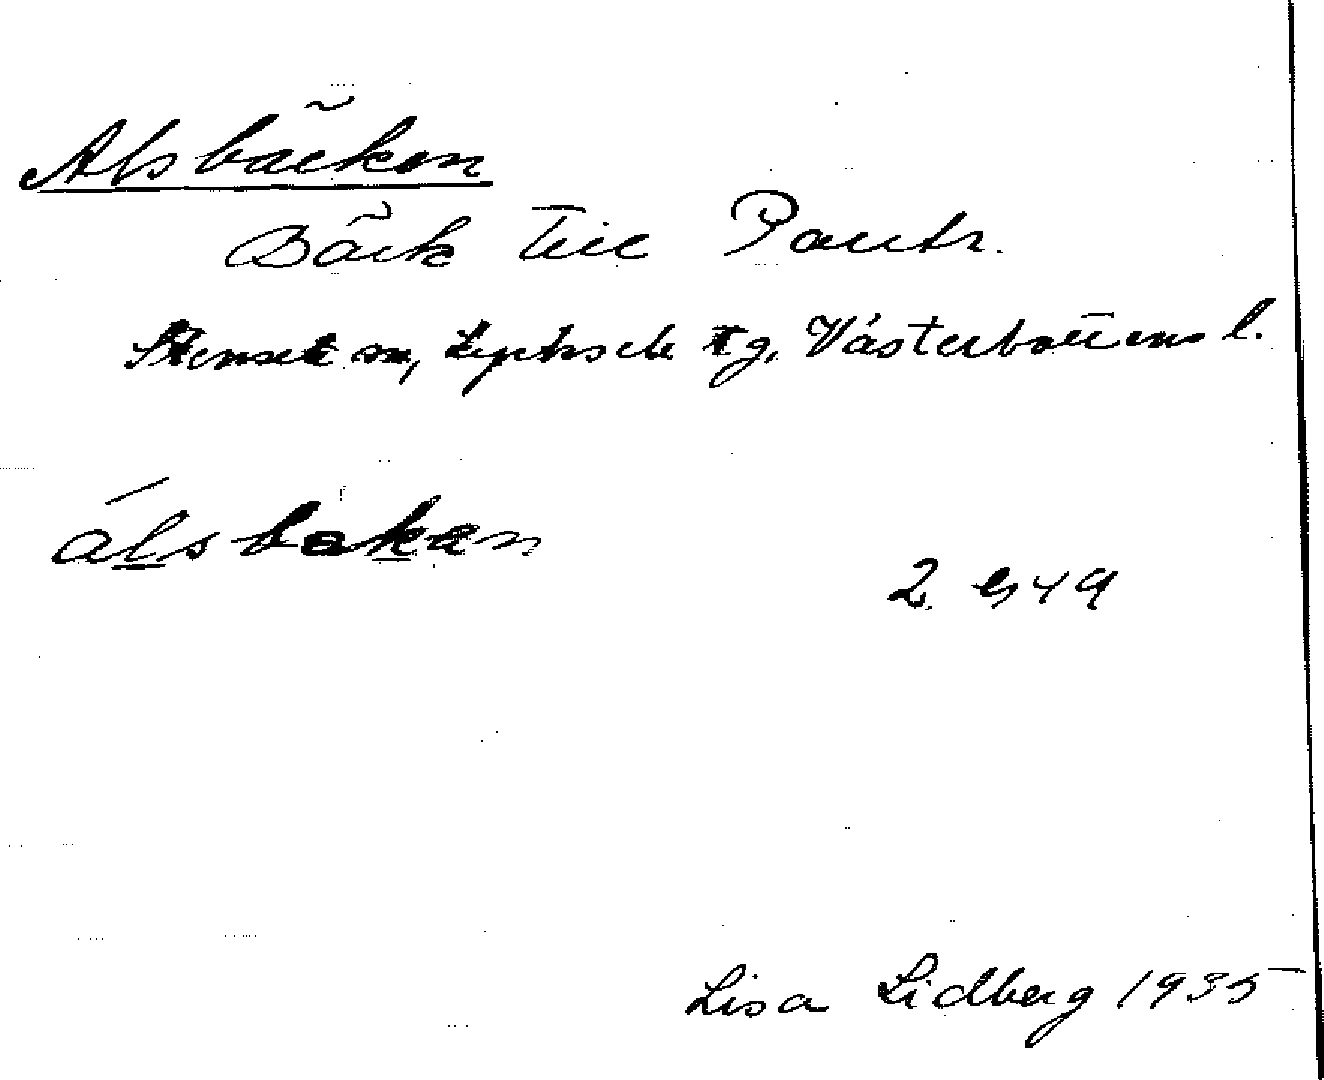 Alsbäcken
Bäck till Pautr.
Stensele sn, Lycksele tg, Västerbottens l.
álsbakan
2 49
Lisa Lidberg 1935